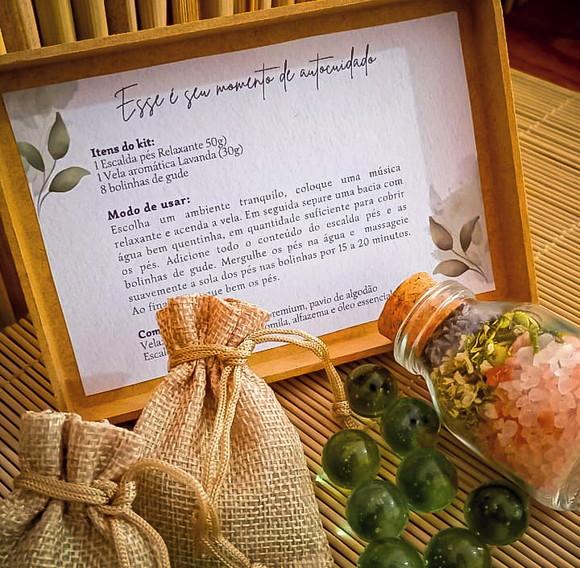 Esse é seu momento de autocuidado
Itens do kit:
1 Escalda pés Relaxante 50g)
1 Vela aromática Lavanda (30g)
8 bolinhas de gude
Modo de usar:
Escolha um ambiente tranquilo, coloque uma música
relaxante e acenda a vela. Em seguida separe uma bacia com
água bem quentinha, em quantidade suficiente para cobrir
os pés. Adicione todo o conteúdo do escalda pés e as
bolinhas de gude. Mergulhe os pés na água e massageie
suavemente a sola dos pés nas bolinhas por 15 a 20 minutos.
Ao que bem os pés.
pavio de algodão
alfazema e óleo